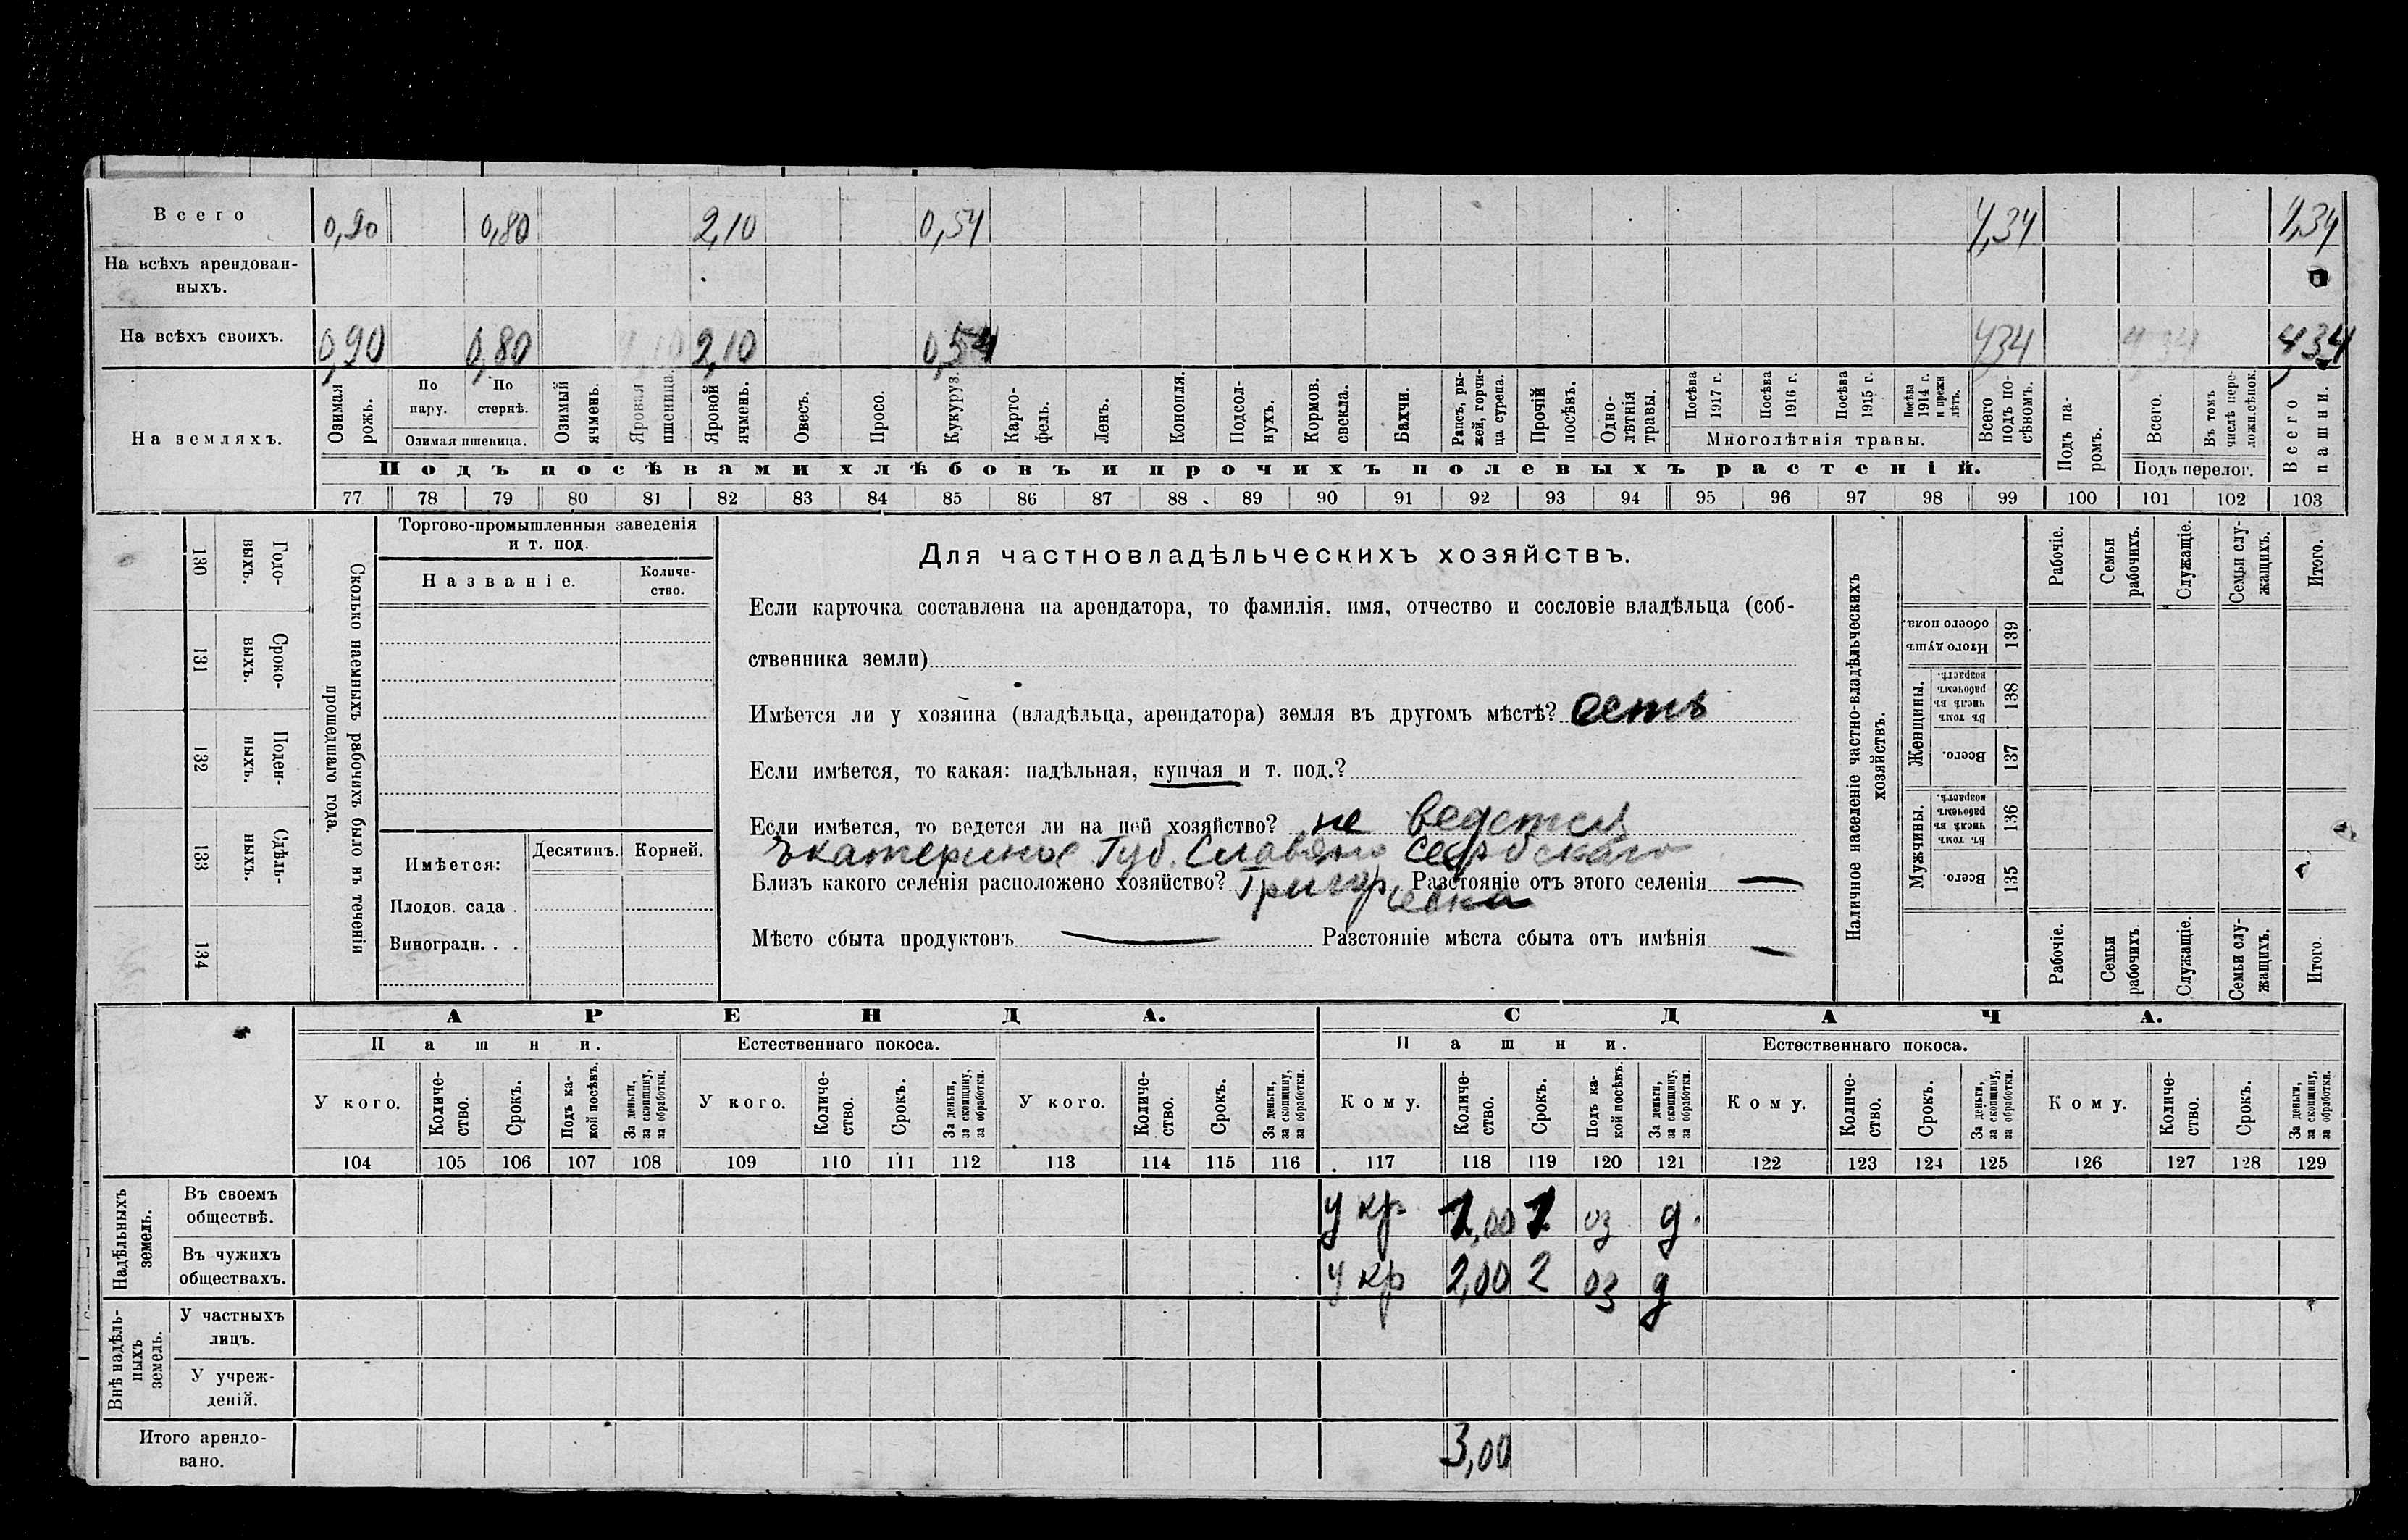 Всего 0,90 0,80 2,10 0,54 4,34 4,34
На всѣхъ арендован-
ныхъ. 0
На всѣхъ своихъ. 0,90 0,80 2,10 0,54 4,34 4,34
На земляхъ.
Озимая рожь.
По пару.
По стернѣ.
Озимая пшеница.
Озимый ячмень.
Яровая пшеница.
Яровой ячмень.
Овесъ.
Просо.
Кукуруз.
Карто-
фель.
Ленъ.
Конопля.
Подсол-
нухъ.
Кормов. свекла.
Бахчи.
Рапсъ, ры-
жей, горчи-
ца сурепа.
Прочій посѣвъ.
Одно-
лѣтнія травы.
Посѣва 1917 г.
Посѣва 1916 г.
Посѣва 1915 г.
Посѣва 1914 г. и прежн лѣтъ.
Многолѣтнія травы.
Всего подъ по-
сѣвомъ.
Подъ па-
ромъ.
Всего.
Въ томъ числѣ пере-
ложн.сѣнок.
Подъ перелог.
Всего пашни.
Подъ посѣвами хлѣбовъ и прочихъ полевыхъ растеній.
77 78 79 80 81 82 83 84 85 86 87 88 89 90 91 92 93 94 95 96 97 98 99 100 101 102 103
Сколько наемныхъ рабочихъ было въ теченіи
прошедшаго года.
Годо-
выхъ.
130
Сроко-
ныхъ.
131
Поден-
ныхъ.
132
Сдѣль-
ныхъ.
133
134
Торгово-промышленныя заведенія
и т. под.
Названіе.
Количе-
ство.
Имѣется:
Десятинъ. Корней.
Плодов. сада .
Виноградн. . .
Для частновладѣльческихъ хозяйствъ.
Если карточка составлена на арендатора, то фамилія, имя, отчество и сословіе владѣльца (соб-
ственника земли)
Имѣется ли у хозяина (владѣльца, арендатора) земля въ другомъ мѣстѣ? есть
Если имѣется, то какая: надѣльная, купчая и т. под.?
Если имѣется, то ведется ли на ней хозяйство? не ведется
Екатеринос Губ. Славяно Сербскаго
Близъ какого селенія расположено хозяйство? Григорьевка Разстояніе отъ этого селенія —
Мѣсто сбыта продуктовъ — Разстояніе мѣста сбыта отъ имѣнія —
Наличное населеніе частно-владѣльческихъ
хозяйствъ.
Рабочіе.
Семьи рабочихъ.
Служащіе.
Семьи слу-
жащихъ.
Итого.
Итого душъ обоего пола.
139
Женщины.
Въ томъ числѣ въ рабочемъ возрастѣ.
138
Всего.
137
Мужчины.
Въ томъ числѣ въ рабочемъ возрастѣ.
136
Всего.
135
Рабочіе.
Семьи рабочихъ.
Служащіе.
Семьи слу-
жащихъ.
Итого.
АРЕНДА. СДАЧА.
Пашни. Естественнаго покоса. Пашни. Естественнаго покоса.
У кого.
Количе-
ство.
Срокъ.
Подъ ка-
кой посѣвъ.
За деньги, за скопщину, за обработки.
У кого.
Количе-
ство.
Срокъ.
За деньги, за скопщину, за обработки.
У кого.
Количе-
ство.
Срокъ.
За деньги, за скопщину, за обработки.
Кому.
Количе-
ство.
Срокъ.
Подъ ка-
кой посѣвъ.
За деньги, за скопщину, за обработки.
Кому.
Количе-
ство.
Срокъ.
За деньги, за скопщину, за обработки.
Кому.
Количе-
ство.
Срокъ.
За деньги, за скопщину, за обработки.
104 105 106 107 108 109 110 111 112 113 114 115 116 117 118 119 120 121 122 123 124 125 126 127 128 129
Надѣльныхъ земель.
Въ своемъ
обществѣ. у кр. 1,00 1 оз д.
Въ чужихъ
обществахъ. у кр 2,00 2 оз д
Внѣ надѣль-
ныхъ
земель.
У частныхъ
лицъ.
У учреж-
деній.
Итого арендо-
вано. 3,00